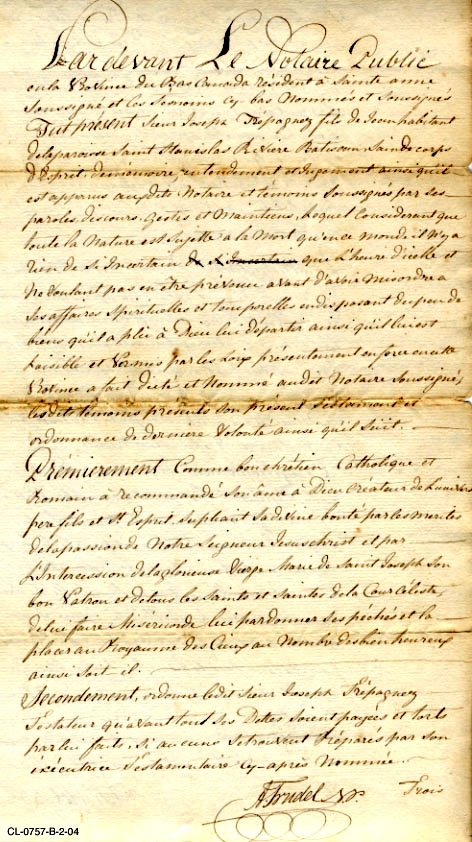 Pardevant Le Notaire Public
en la Province du Bas Canada résident à Sainte anne
Soussigné et les temoins Cy bas Nommés et Soussignés
Fut présent Sieur Joseph Trépagney fils de Jean habitant
dela paroisse Saint Stanislas Rivière Batiscan Sain de corps
d'Esprit, demémoire, entendement et Jugement ainsi qu'il
est apperus audits Notaire et témoins Soussignés par ses
paroles discours, Gestes et Maintiens, Lequel Considérant que
toute la Nature est Sujette a la Mort qu'en ce monde il n'y a
rien de Si Incertain de Si Incertain que L'heure d'icelle et
Ne voulant pas en être prévenu avant d'avoir mis ordre a
Ses affaires Spirituelles et temporelles en disposant du peu de
biens qu'il a plû à Dieu lui départir ainsi qu'il lui est
Loisible et Permis par les Loix présentement en force en cette
Province a fait dicté et Nommé audit Notaire Soussigné,
lesdits témoins présents Son présent Testament et
ordonnance de dernière Volonté ainsi qu'il Suit.
Prémièrement Comme bon chrétien Catholique et
Romain à recommandé Son âme à Dieu Créateur de Lunivers
pere fils et St Esprit, Supliant Sa devine bonté par les merites
de la passion de Notre Seigneur Jesus christ et par
L'Intercession de la Glorieuse Vierge Marie de Saint Joseph Son
bon Patron et de tous les Saints et Saintes de la Cour Céleste,
de lui faire Misericorde lui pardonner Ses péchés et la
placer au Royaume des Cieux au Nombre des bien heureux
ainsi Soit il.
Secondement, ordonne ledit Sieur Joseph Trépagney
Testateur qu'avant tout Ses Dettes Soient payées et torts
par lui faits, Si aucuns Se trouvent Réparés par Son
exécutrice Testamentaire Cy-après Nommée.
A Trudel N.P. Trois
CL-0757-B-2-04